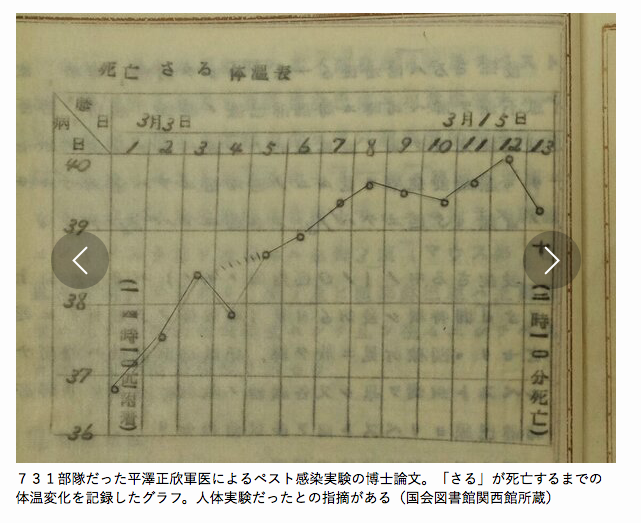 死亡さる体温表
暦日
病日
3月3日
3月15日
1 2 3 4 5 6 7 8 9 10 11 12 13
40
39
38
37
36
十(二時一〇分死亡)
731部隊だった平澤正欣軍医によるペスト感染実験の博士論文。「さる」が死亡するまでの
体温変化を記録したグラフ。人体実験だったとの指摘がある(国会図書館関西館所蔵)